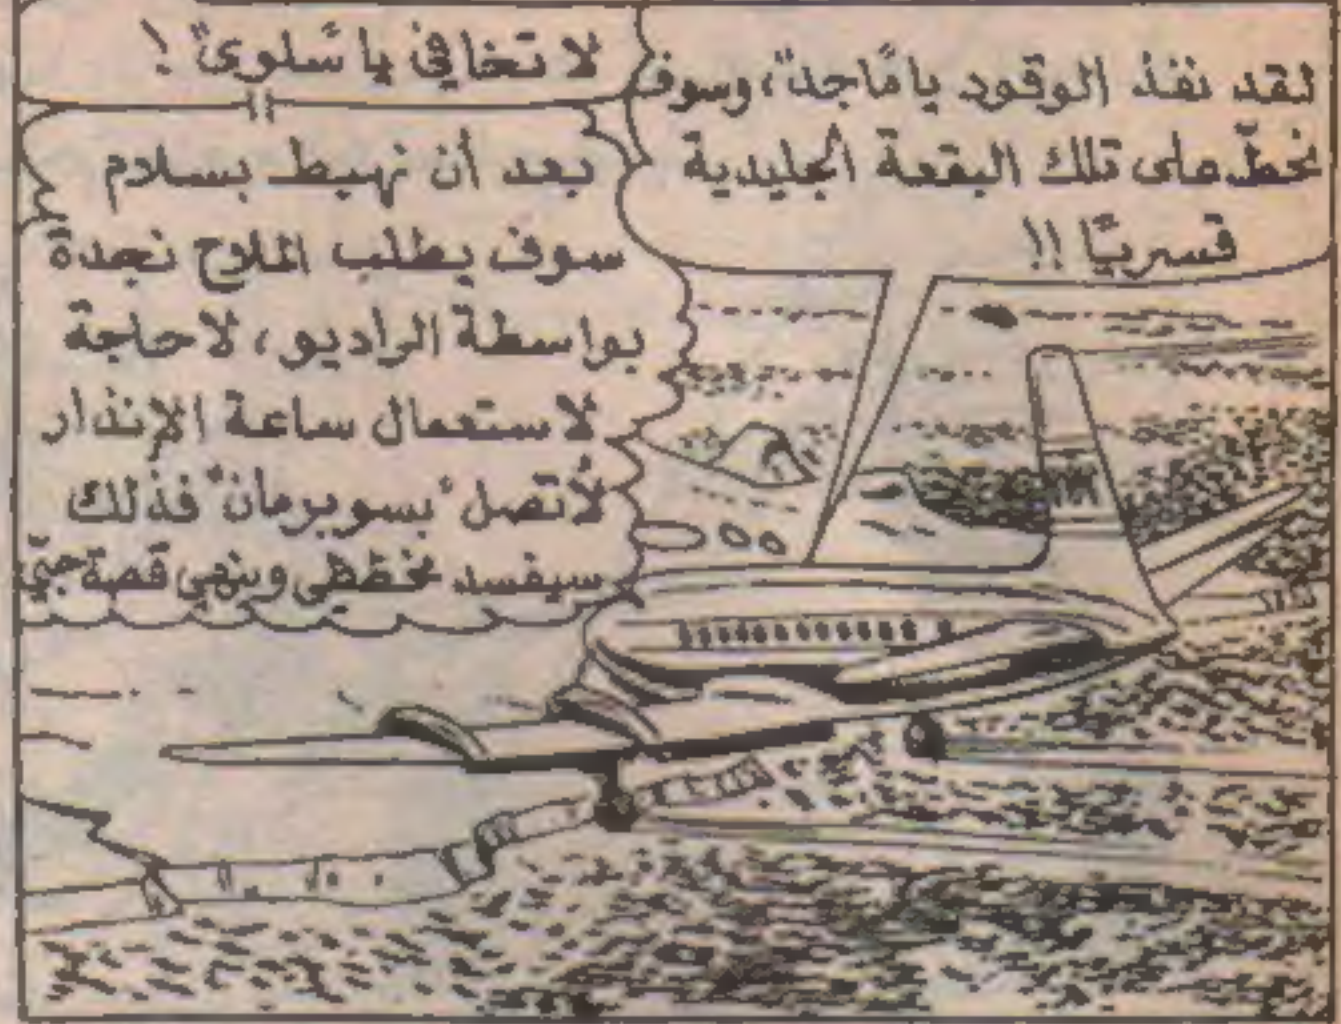 لقد نفذ الوقود يا "ماجد"، وسوف
نحطّ على تلك البقعة الجليدية
قسريًا !!
لا تخافي يا "سلوى" !
بعد أن نهبط بسلام
سوف يطلب الملاح نجدة
بواسطة الراديو، لا حاجة
لاستعمال ساعة الإنذار
لأتصل "بسوبرمان" فذلك
سيفسد مخططي وينهي قصة حبّي